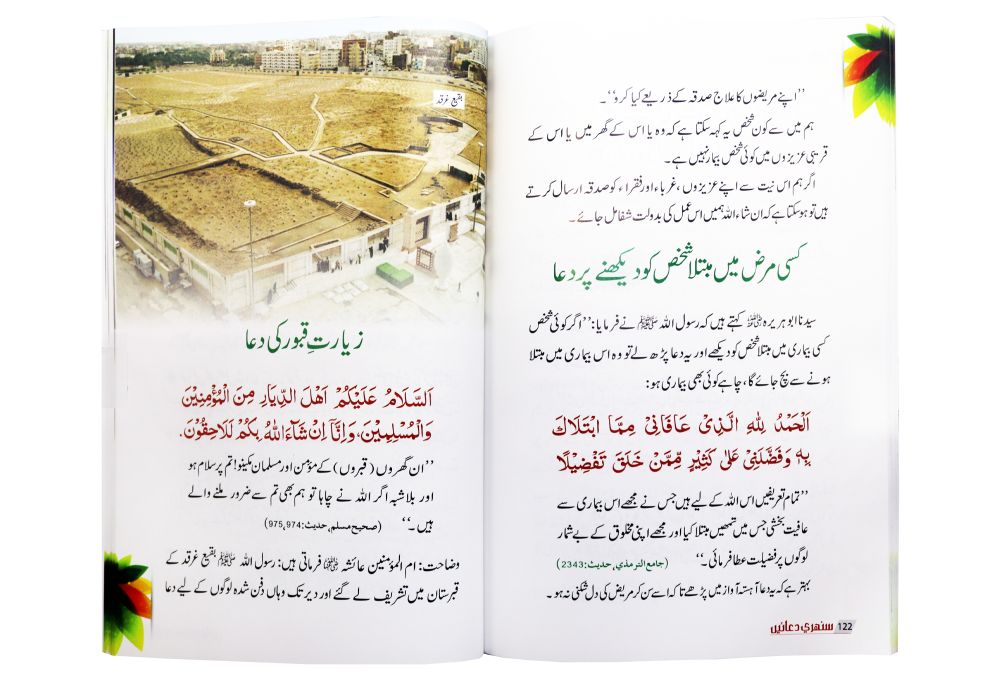 ’’اپنے مریضوں کا علاج صدقہ کے ذریعے کیا کرو‘‘۔
ہم میں سے کون شخص یہ کہہ سکتا ہے کہ وہ یا اس کے گھر میں یا اس کے
قریبی عزیزوں میں کوئی شخص بیمار نہیں ہے۔
اگر ہم اس نیت سے اپنے عزیزوں، غرباء اور فقراء کو صدقہ ارسال کرتے
ہیں تو ہو سکتا ہے کہ ان شاء اللہ ہمیں اس عمل کی بدولت شفا مل جائے۔
کسی مرض میں مبتلا شخص کو دیکھنے پر دعا
سیدنا ابو ہریرہ رضی اللہ عنہ کہتے ہیں کہ رسول اللہ ﷺ نے فرمایا: ’’اگر کوئی شخص
کسی بیماری میں مبتلا شخص کو دیکھے اور یہ دعا پڑھ لے تو وہ اس بیماری میں مبتلا
ہونے سے بچ جائے گا، چاہے کوئی بھی بیماری ہو:
اَلْحَمْدُ لِلّٰهِ الَّذِيْ عَافَانِيْ مِمَّا ابْتَلَاكَ
بِهٖ وَفَضَّلَنِيْ عَلٰى كَثِيْرٍ مِّمَّنْ خَلَقَ تَفْضِيْلًا
’’تمام تعریفیں اس اللہ کے لیے ہیں جس نے مجھے اس بیماری سے
عافیت بخشی جس میں تمھیں مبتلا کیا اور مجھے اپنی مخلوق کے بے شمار
لوگوں پر فضیلت عطا فرمائی۔‘‘ (جامع الترمذي، حديث: 2343)
بہتر ہے کہ یہ دعا آہستہ آواز میں پڑھے تاکہ اسے سن کر مریض کی دل شکنی نہ ہو۔
122 سنهري دعائیں
بقیع غرقد
زیارتِ قبور کی دعا
اَلسَّلَامُ عَلَيْكُمْ اَهْلَ الدِّيَارِ مِنَ الْمُؤْمِنِيْنَ
وَالْمُسْلِمِيْنَ، وَاِنَّا اِنْ شَاءَ اللّٰهُ بِكُمْ لَلَاحِقُوْنَ.
’’ان گھروں (قبروں) کے مؤمن اور مسلمان مکینو! تم پر سلام ہو
اور بلاشبہ اگر اللہ نے چاہا تو ہم بھی تم سے ضرور ملنے والے
ہیں۔‘‘ (صحیح مسلم، حدیث: 974، 975)
وضاحت: ام المؤمنین عائشہ رضی اللہ عنہا فرماتی ہیں: رسول اللہ ﷺ بقیع غرقد کے
قبرستان میں تشریف لے گئے اور دیر تک وہاں دفن شدہ لوگوں کے لیے دعا